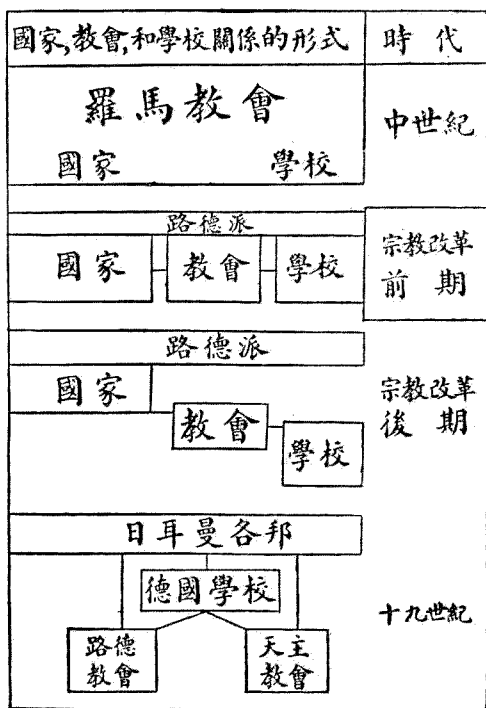 國家,教會,和學校關係的形式 時代
羅馬教會
國家 學校
中世紀
路德派
國家 教會 學校
宗教改革
前期
路德派
國家
教會
學校
宗教改革
後期
日耳曼各邦
德國學校
路德
教會
天主
教會
十九世紀